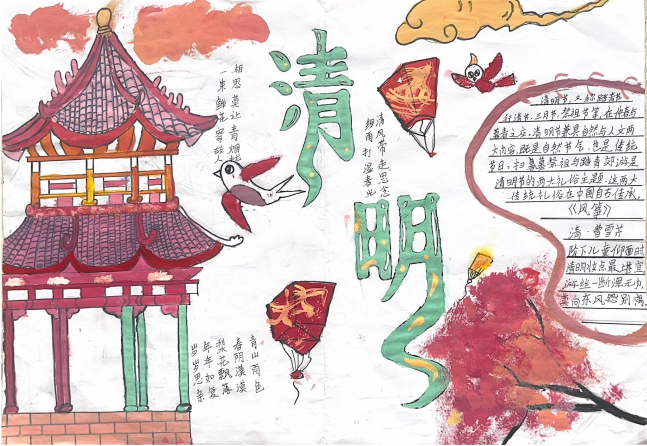 清
明
相思莫让青烟起
一束鲜花寄故人
清风带走思念
细雨打湿春
青山雨色
春阴漠漠
梨花飘落
年年如复
岁岁思亲
清明节,又称踏青节
行清节、三月节、祭祖节等,在仲春与
暮春之交。清明节兼具自然与人文两
大内涵,既是自然节气,也是传统
节日,扫墓祭祖与踏青郊游是
清明节的两大礼俗主题,这两大
传统礼俗在中国自古传承。
《风筝》
清·曹雪芹
阶下儿童仰面时
清明妆点最堪宜
游丝一断浑无力
莫向东风怨别离。